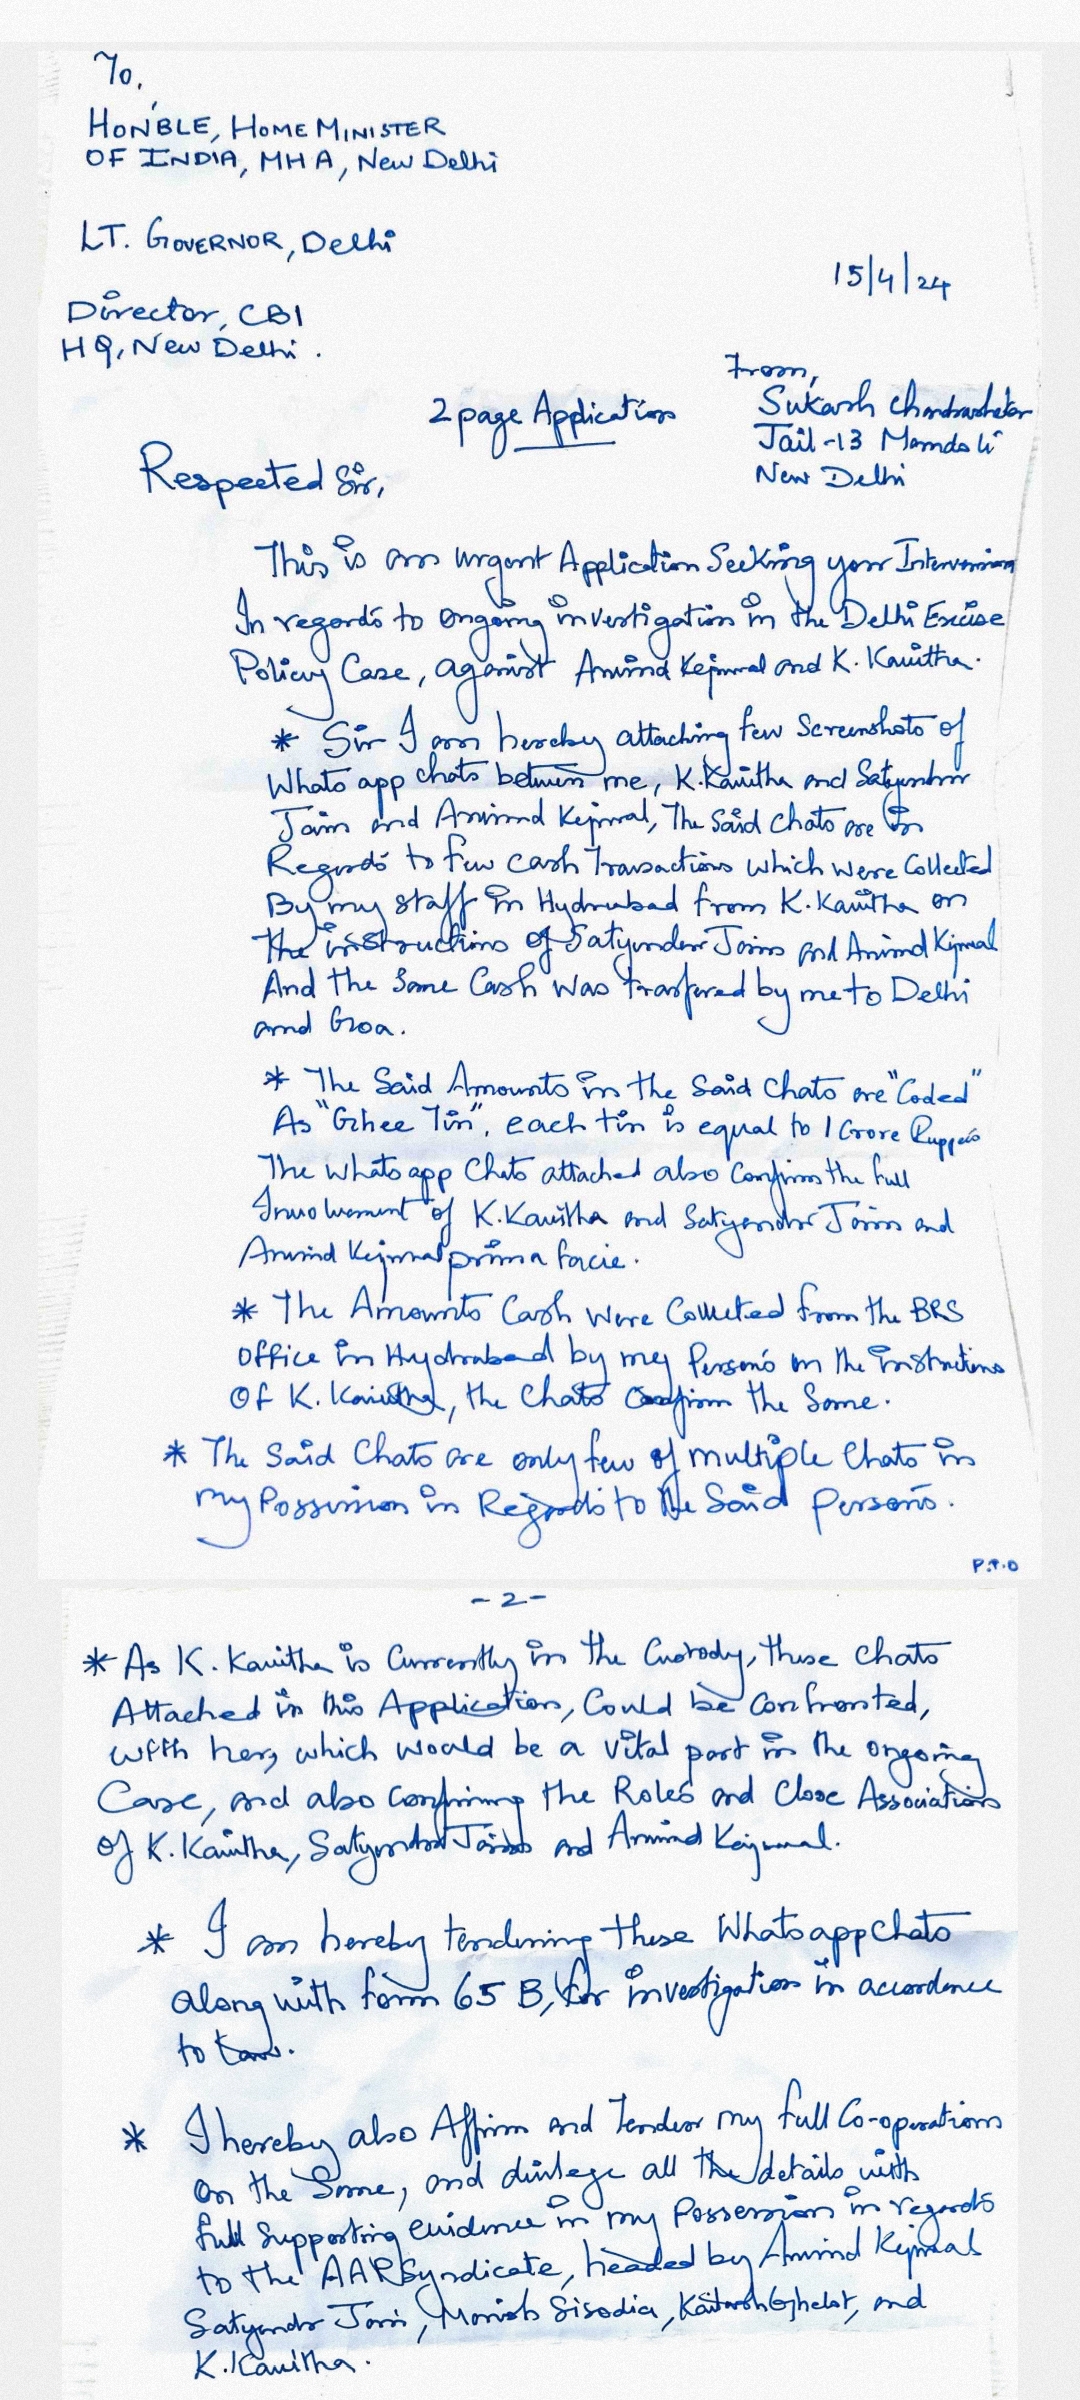 To,
HON'BLE, HOME MINISTER
OF INDIA, MHA, New Delhi
LT. GOVERNOR, Delhi
15/4/24
Director, CBI
HQ, New Delhi.
From,
Sukash Chandrashekar
Jail-13 Mandoli
New Delhi
2 page Application
Respected Sir,
This is an urgent Application Seeking your Intervension
In regards to ongoing investigation in the Delhi Excise
Policy Case, against Arvind Kejriwal and K. Kavitha.
* Sir I am hereby attaching few Screenshots of
Whats app chats between me, K. Kavitha and Satyendar
Jain and Arvind Kejriwal, The Said Chats are in
Regards to few cash Transactions which were Collected
By my staff in Hydrabad from K. Kavitha on
the instructions of Satyender Jain and Arvind Kejriwal
And the Same Cash was transfered by me to Delhi
and Goa.
* The Said Amounts in the Said Chats are "Coded"
As "Ghee Tin", each tin is equal to 1 Crore Ruppes
The whats app Chats attached also Confirm the full
Involvement of K. Kavitha and Satyendar Jain and
Arvind Kejriwal prima facie.
* The Amounts Cash were Collected from the BRS
Office in Hydrabad by my Persons on the instructions
Of K. Kavitha, the Chats Confirm the Same.
* The Said Chats are only few of multiple Chats in
my Possession in Regards to the Said persons.
P.T.O
- 2 -
* As K. Kavitha is Currently in the Custody, these Chats
Attached in this Application, Could be Confronted,
with her, which would be a vital part in the ongoing
Case, and also Confirming the Roles and Close Association
of K. Kavitha, Satyendar Jain and Arvind Kejriwal.
* I am hereby tendering these Whats app Chats
along with form 65 B, for investigation in accordence
to Law.
* I hereby also Affirm and Tender my full Co-operation
on the Same, and divlege all the details with
full supporting evidence in my Possession in regards
to the AAP Syndicate, headed by Arvind Kejriwal
Satyendr Jain, Manish Sisodia, Kailash Ghelot, and
K. Kavitha.